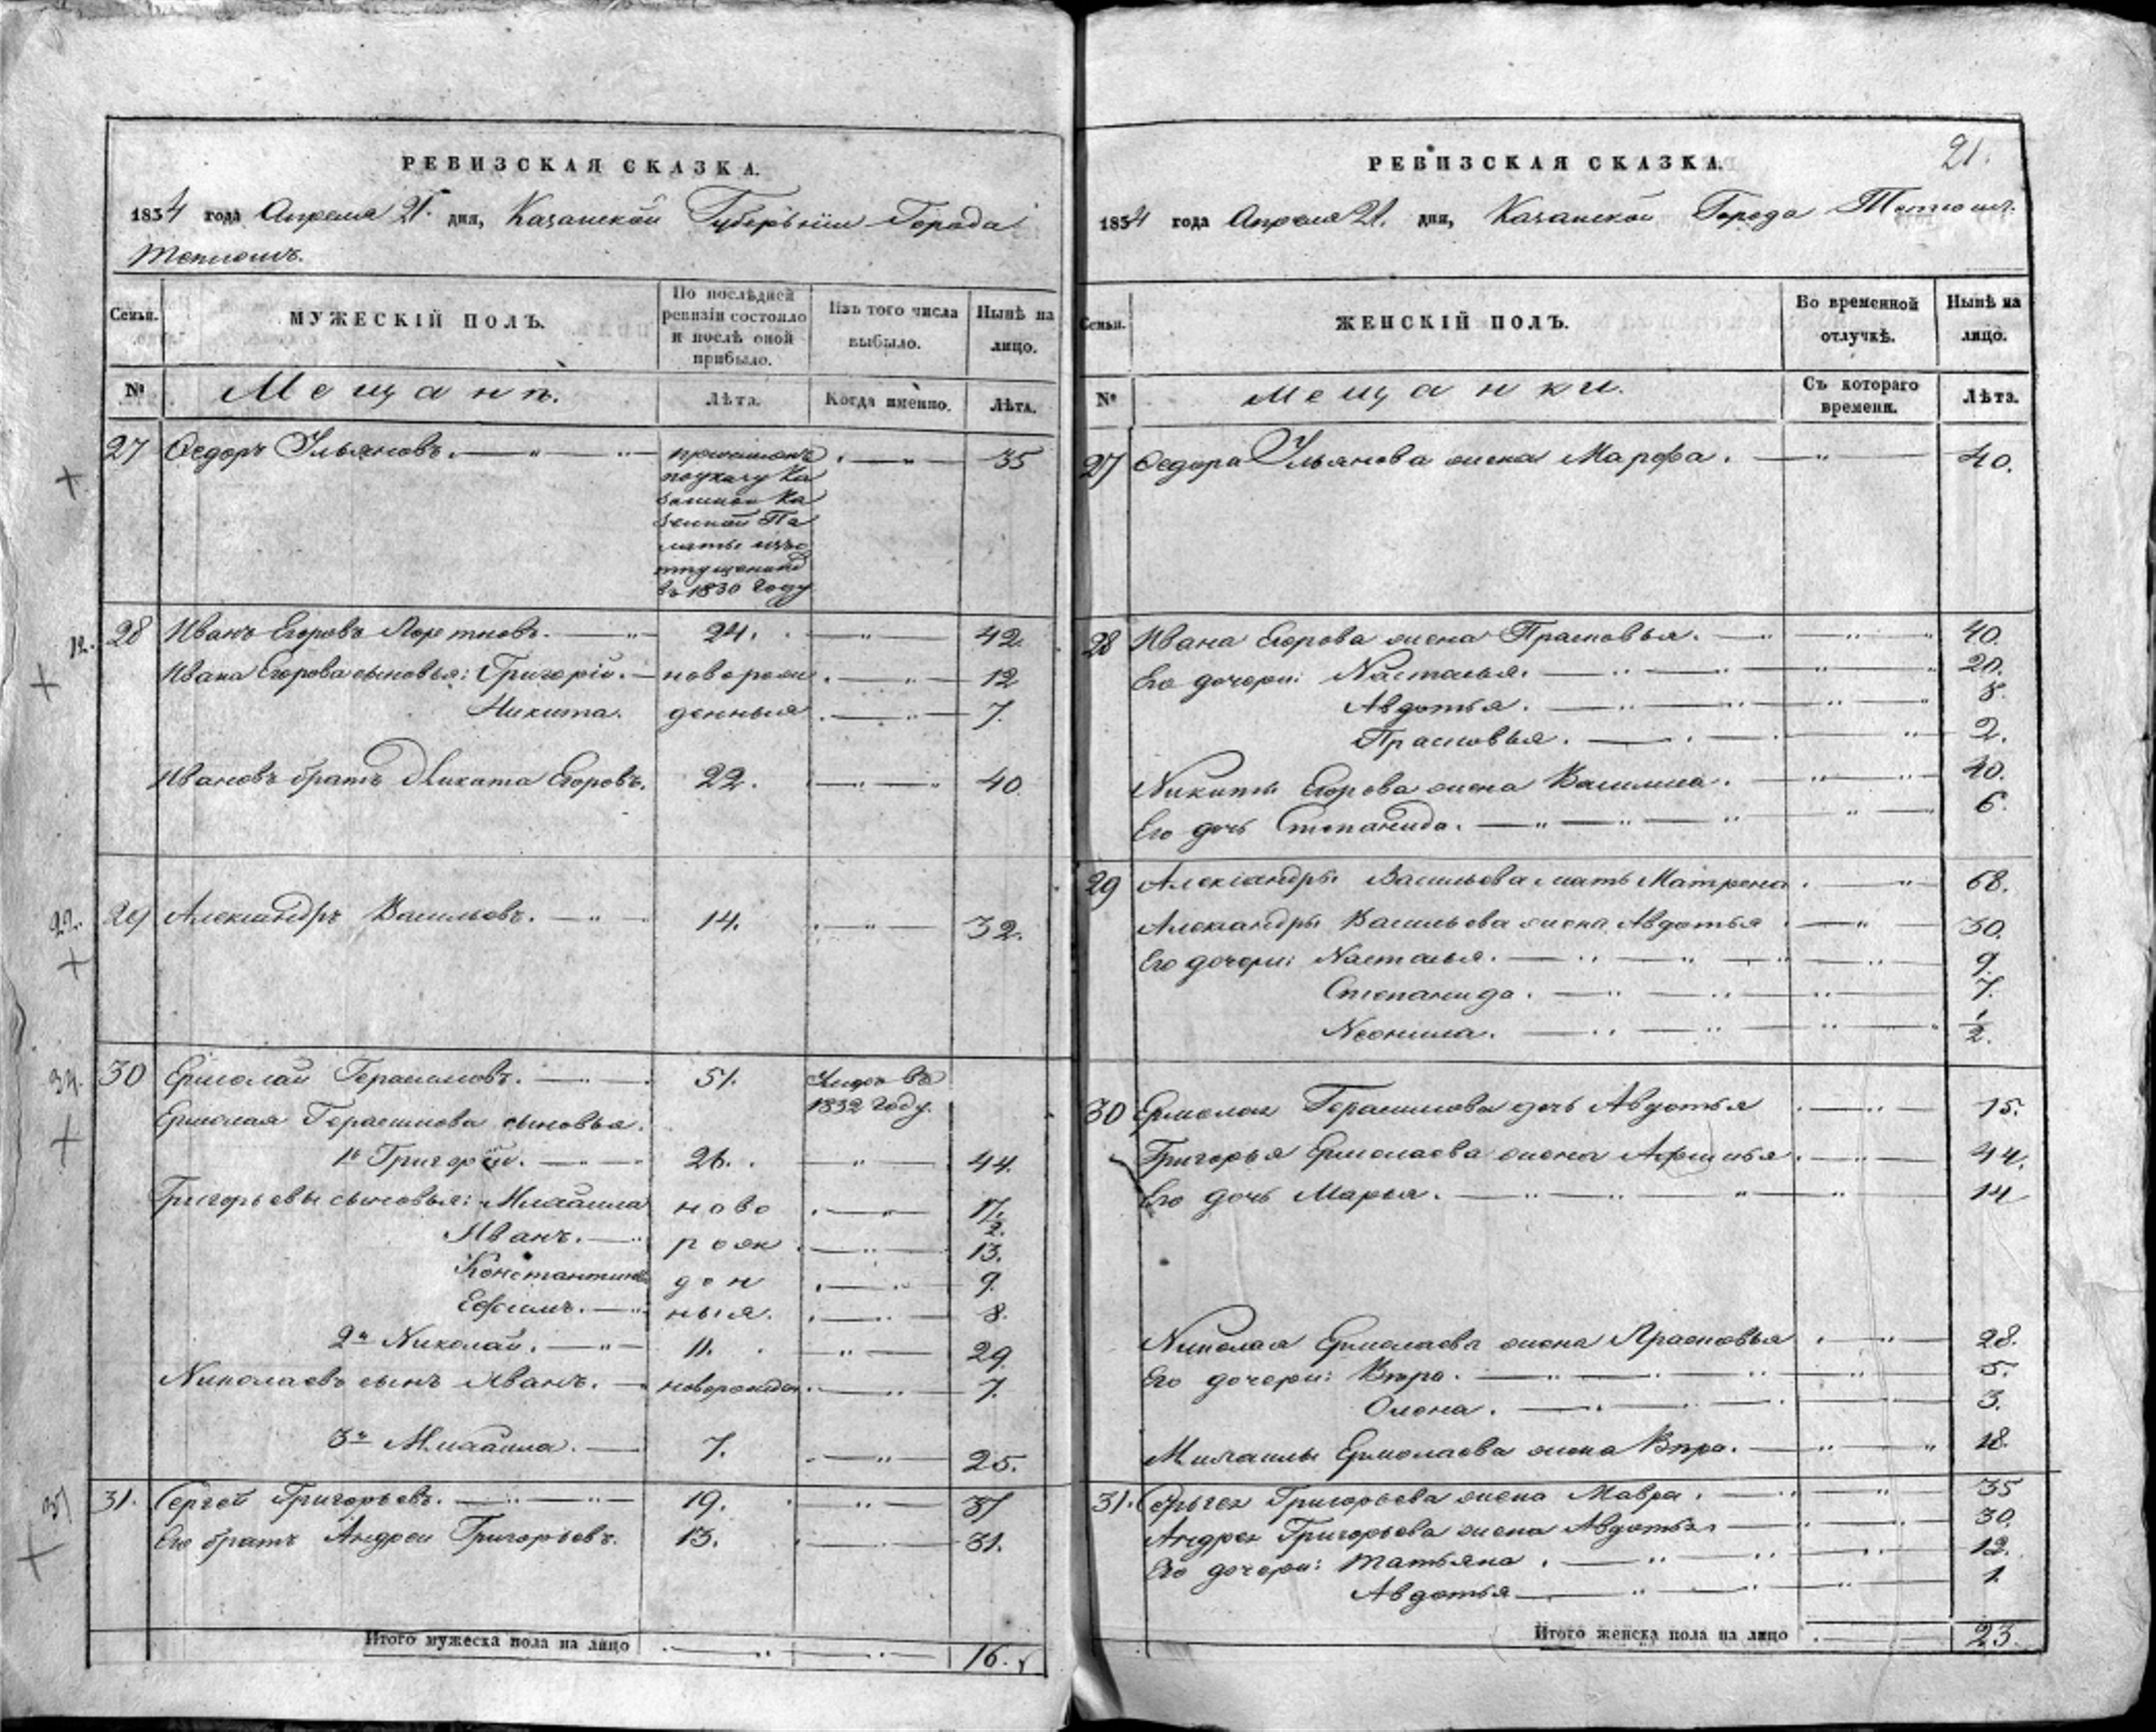 РЕВИЗСКАЯ СКАЗКА.
1834 года Апреля 21. дня, Казанской Губернiи Города
Тетюшъ.
Семьи.
МУЖЕСКIЙ ПОЛЪ.
По послѣдней ревизiи состояло и послѣ оной прибыло.
Изъ того числа выбыло.
Нынѣ на лицо.
№
Мещанѣ.
Лѣта.
Когда именно.
Лѣта.
27 Ѳедоръ Ильяновъ. 35
по указу Ка
занской Ка
зенной Па
латы изъ о
тпущен
въ 1830 году
12. 28 Иванъ Егоровъ 24. 42.
Ивана Егорова сыновья: Григорiй. новорож 12
Никита. денныя 7.
Ивановъ братъ Никита Егоровъ. 22. 40
22. 29 Александръ Васильевъ. 14. 32.
30 Ермолай Герасимовъ. 51. Умре въ
1832 году.
Ермолая Герасимова сыновья.
1й Григорiй. 26. 44.
Григорьевы сыновья: Михайла ново
Иванъ. рож 13.
Константинъ ден 9.
Ефимъ. ныя. 8.
2й Николай. 11. 29
Николаевъ сынъ Иванъ. новорожден 7.
3й Михайла. 7. 25.
31. Сергей Григорьевъ. 19. 37
Его братъ Андрей Григорьевъ. 13. 31.
Итого мужеска пола на лицо 16.
21.
РЕВИЗСКАЯ СКАЗКА.
1834 года Апреля 21. дня, Казанской Города Тетюшъ.
Семьи.
ЖЕНСКIЙ ПОЛЪ.
Во временной отлучкѣ.
Нынѣ на лицо.
№
Мещанки.
Съ котораго времени.
Лѣта.
27 Ѳедора Ильянова жена Марфа. 40.
28 Ивана Егорова жена Прасковья. 40.
Его дочери: Настасья. 20.
Авдотья. 8.
Прасковья. 2.
Никиты Егорова жена Василиса. 40.
Его дочь Степанида. 6.
29 Александры Васильева мать Матрена. 68.
Александры Васильева жена Авдотья 30.
Его дочери: Настасья. 9.
Степанида. 7.
Неонила. 1/2.
30 Ермолая Герасимова дочь Авдотья 15.
Григорья Ермолаева жена 44.
Его дочь Марья. 14
Николая Ермолаева жена Прасковья 28.
Его дочери: Вѣра. 5.
Олена. 3.
Михайлы Ермолаева жена Вѣра. 18.
31. Сергея Григорьева жена Мавра. 35
Андрея Григорьева жена Авдотья 30.
Его дочери: Татьяна. 12.
Авдотья 1.
Итого женска пола на лицо 23.